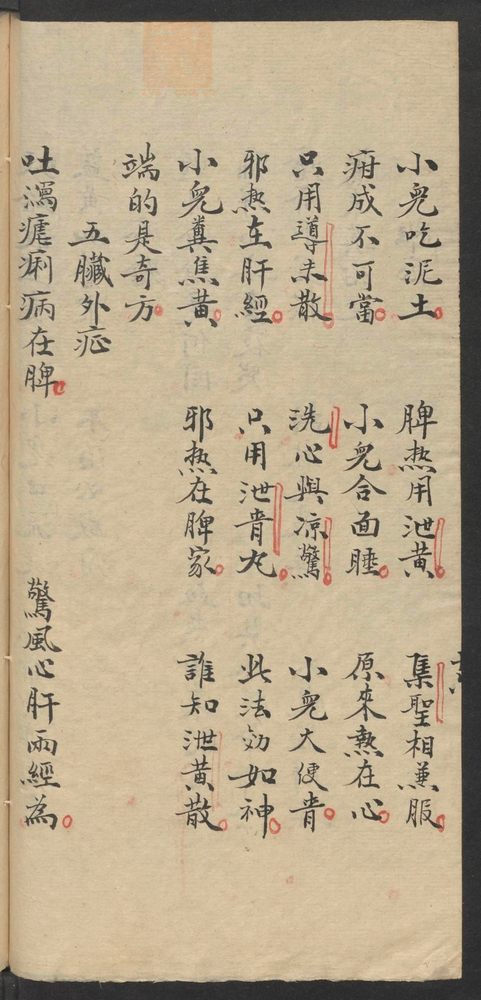 小兒吃泥土 脾熱用泄黄 集聖相兼服
疳成不可當 小兒合面睡 原來熱在心
只用導赤散 洗心與凉驚 小兒大便青
邪熱在肝經 只用泄青丸 此法効如神
小兒糞焦黄 邪热在脾家 誰知泄黄散
端的是奇方
五臟外症
吐瀉瘧痢病在脾 驚風心肝兩經為